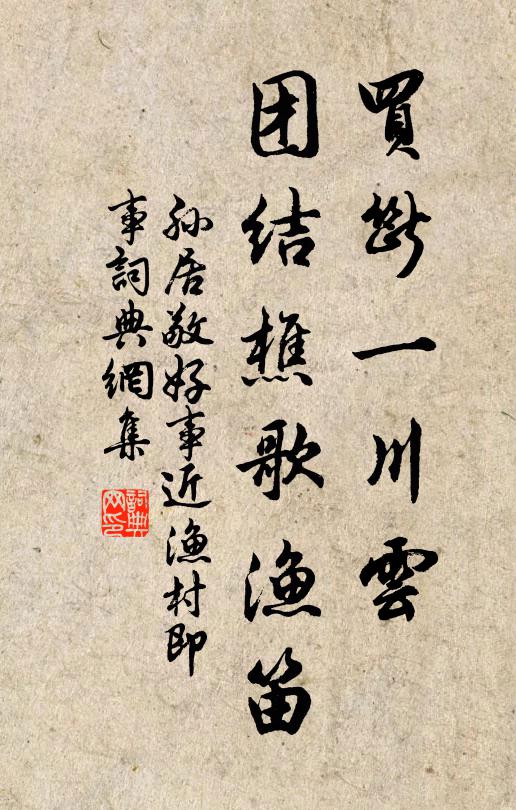 買斷一川雲
团结樵歌漁笛
孙居敬好事近漁村即
事詞典網集
詞典网印